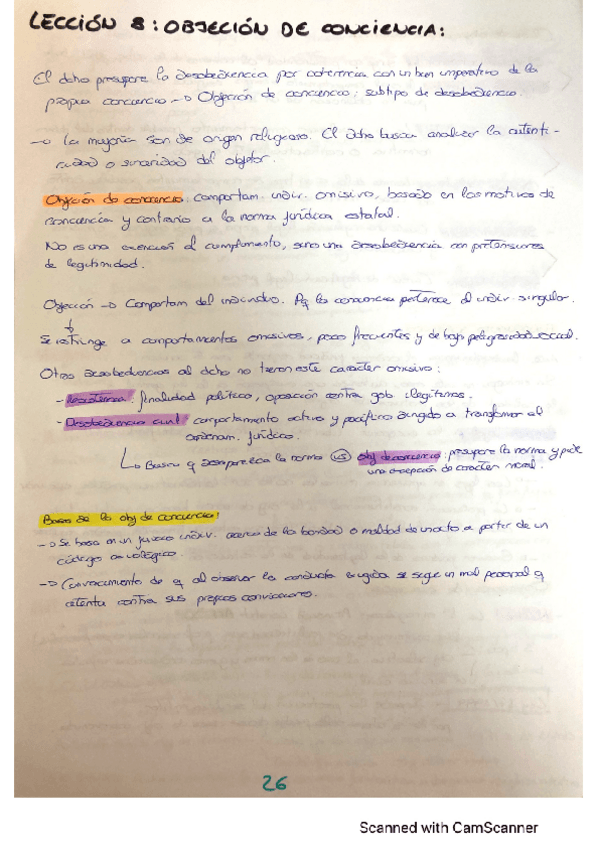 LECCIÓN 8: OBJECIÓN DE CONCIENCIA:
El dcho presupone la desobediencia por coherencia con un bien imperativo de la
propia conciencia → Objeción de conciencia: subtipo de desobediencia.
→ La mayoría son de origen religioso. El dcho busca analizar la autenti-
cidad o sinceridad del objetor.
Objeción de conciencia: comportam. indiv. omisivo, basado en los motivos de
conciencia y contrario a la norma jurídica estatal.
No es una exención al cumplimiento, sino una desobediencia con pretensiones
de legitimidad.
Objeción → Comportam del individuo. Pq la conciencia pertenece al indiv. singular.
↓
Se restringe a comportamientos omisivos, poco frecuentes y de baja peligrosidad social.
Otras desobediencias al dcho no tienen este carácter omisivo:
- Resistencia: finalidad política, oposición contra gob ilegítimos.
- Desobediencia civil: comportamiento activo y pacífico dirigido a transformar el
ordenam. jurídico.
↳ Busca q desaparezca la norma vs obj de conciencia: presupone la norma y pide
una excepción de carácter moral.
Bases de la obj de conciencia:
→ Se basa en un juicio indiv. acerca de la bondad o maldad de un acto a partir de un
código
→ Convencimiento de q al observar la conducta exigida se sigue un mal personal q
atenta contra sus propias convicciones.
26
Scanned with CamScanner